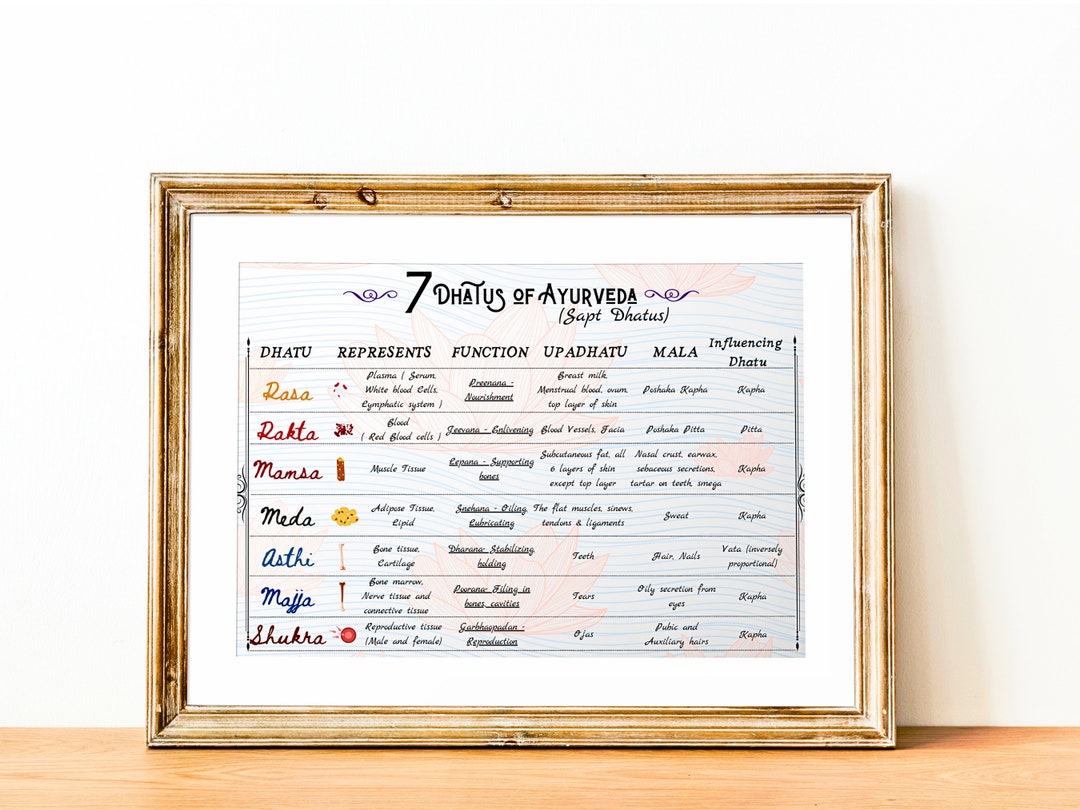 7 Dhatus of Ayurveda
(Sapt Dhatus)
DHATU REPRESENTS FUNCTION UPADHATU MALA Influencing Dhatu
Rasa
Plasma ( Serum,
White blood Cells,
Lymphatic system )
Preenana -
Nourishment
Breast milk,
Menstrual blood, ovum,
top layer of skin
Poshaka Kapha
Kapha
Rakta
Blood
( Red Blood cells )
Jeevana - Enlivening
Blood Vessels, Facia
Poshaka Pitta
Pitta
Mamsa
Muscle Tissue
Lepana - Supporting
bones
Subcutaneous fat, all
6 layers of skin
except top layer
Nasal crust, earwax,
sebaceous secretions,
tartar on teeth, smega
Kapha
Meda
Adipose Tissue,
Lipid
Snehana - Oiling,
Lubricating
The flat muscles, sinews,
tendons & ligaments
Sweat
Kapha
Asthi
Bone tissue,
Cartilage
Dharana- Stabilizing,
holding
Teeth
Hair, Nails
Vata (inversely
proportional)
Majja
Bone marrow,
Nerve tissue and
connective tissue
Poorana- Filing in
bones, cavities
Tears
Oily secretion from
eyes
Kapha
Shukra
Reproductive tissue
(Male and female)
Garbhaopadan -
Reproduction
Ojas
Pubic and
Auxiliary hairs
Kapha